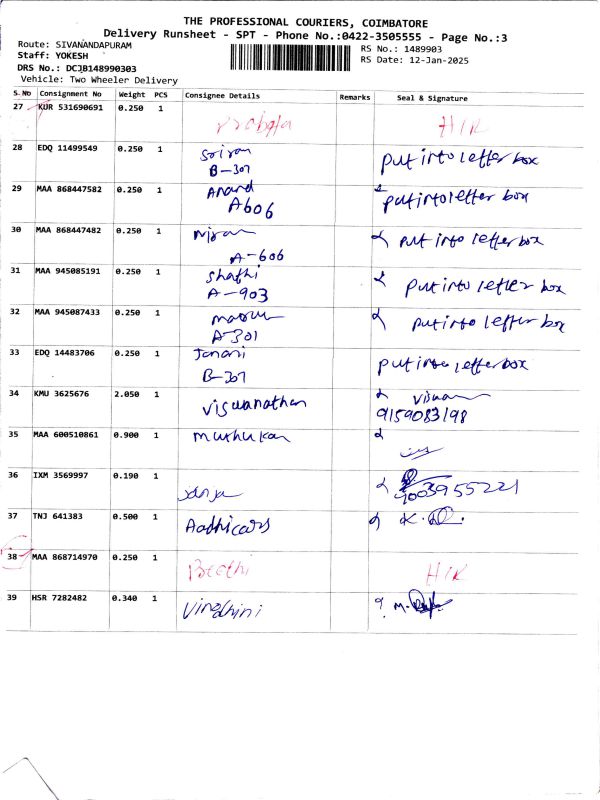 THE PROFESSIONAL COURIERS, COIMBATORE
Delivery Runsheet - SPT - Phone No.:0422-3505555 - Page No.:3
Route: SIVANANDAPURAM
Staff: YOKESH
DRS No.: DCJB148990303
Vehicle: Two Wheeler Delivery
RS No.: 1489903
RS Date: 12-Jan-2025
S.No Consignment No Weight PCS Consignee Details Remarks Seal & Signature
27 KUR 531690691 0.250 1 H/R
28 EDQ 11499549 0.250 1 Sriram put into letter box
B-307
29 MAA 868447582 0.250 1 Anand put into letter box
A606
30 MAA 868447482 0.250 1 put into letter box
A-606
31 MAA 945085191 0.250 1 Shathi put into letter box
A-903
32 MAA 945087433 0.250 1 put into letter box
A-301
33 EDQ 14483706 0.250 1 Janani put into letter box
B-307
34 KMU 3625676 2.050 1 Viswanathan
9159083198
35 MAA 600510861 0.900 1 Muthukan
36 IXM 3569997 0.190 1 9003955221
37 TNJ 641383 0.500 1 Aadhicars
38 MAA 868714970 0.250 1 H/R
39 HSR 7282482 0.340 1 Vinothini